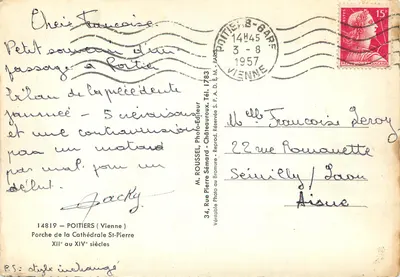 Chère Françoise.
Petit souvenir d'un
passage à Poitiers
bilan de la précédente
journée - 5 livraisons
et une contravention
par un motard
pas mal pour un
début.
Jacky
14819 - POITIERS (Vienne)
Porche de la Cathédrale St-Pierre
XIIe au XIVe siècles
P.S: style inchangé
M. ROUSSEL, Photo-Editeur
34, Rue Pierre Sémard - Châteauroux. Tél. 1783
Véritable Photo au Bromure - Reprod. Réservée S.P.A.D.E.M. - PARIS
POITIERS-GARE
14H45
3 - 8
1957
VIENNE
15F
Mlle Françoise Leroy
22 rue
Laon
Aisne